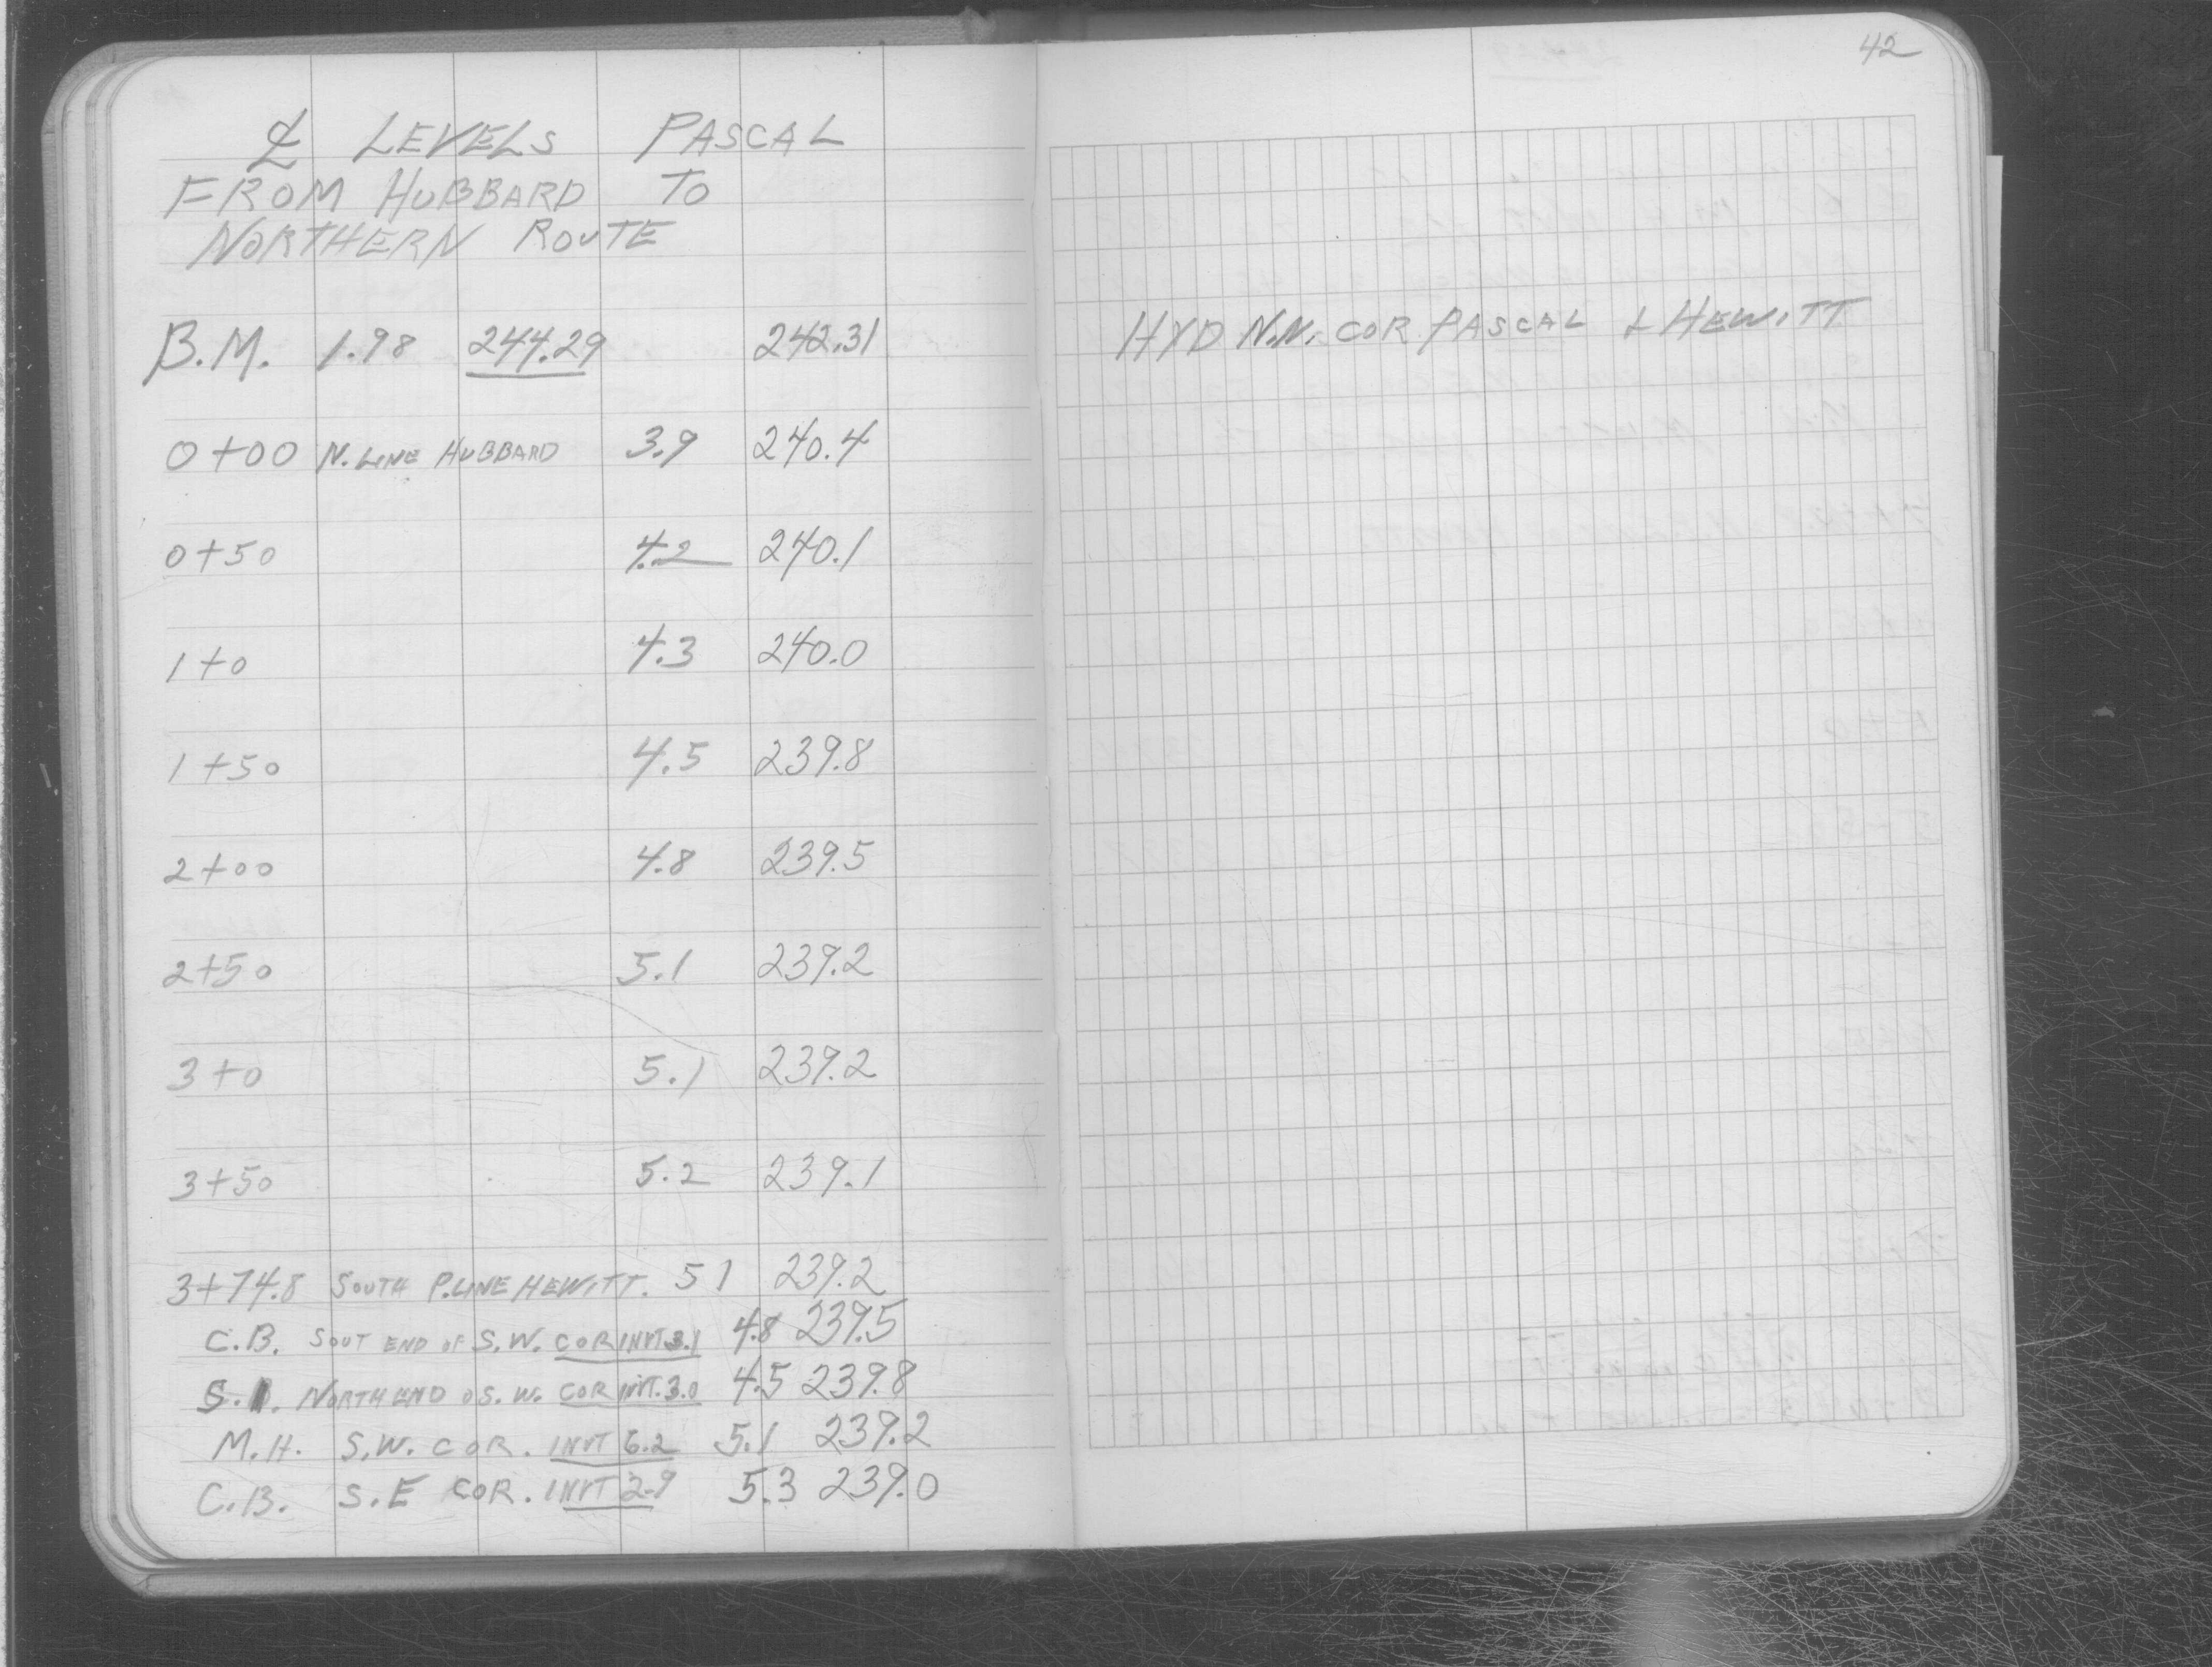 ℄ LEVELS PASCAL
FROM HUBBARD TO
NORTHERN ROUTE
B.M. 1.98 244.29 242.31
0+00 N. LINE HUBBARD 3.9 240.4
0+50 4.2 240.1
1+0 4.3 240.0
1+50 4.5 239.8
2+00 4.8 239.5
2+50 5.1 239.2
3+0 5.1 239.2
3+50 5.2 239.1
3+74.8 SOUTH P.LINE HEWITT. 5 1 239.2
C.B. SOUT END OF S.W. COR INVT 3.1 4.8 239.5
NORTH END O S.W. COR INVT. 3.0 4.5 239.8
M.H. S.W. COR. INVT 6.2 5.1 239.2
C.B. S.E COR. INVT 2.9 5.3 239.0
42
HYD N.N. COR PASCAL & HEWITT